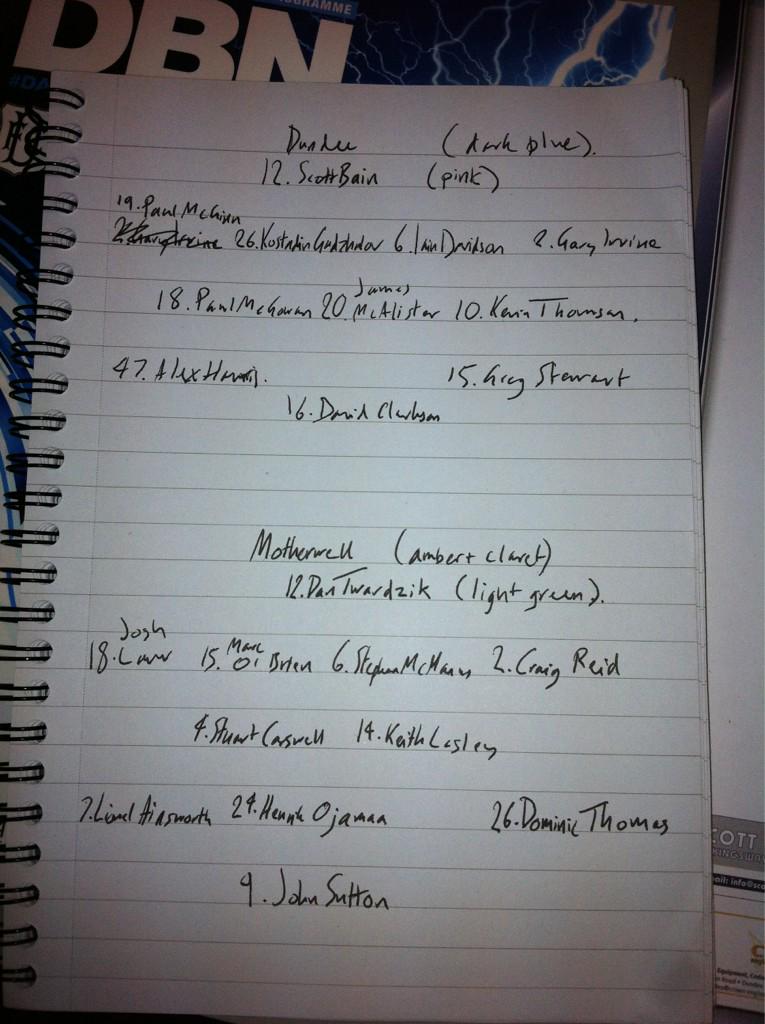 PROGRAMME
DBN
#DA
Dundee (dark blue).
12. Scott Bain (pink)
19. Paul McGinn
2. Gary Irvine 26. Kostadin Gadzhalov 6. Iain Davidson 2. Gary Irvine
James
18. Paul McGowan 20. McAlister 10. Kevin Thomson.
47. Alex Harris. 15. Greg Stewart
16. David Clarkson
Motherwell (amber + claret)
12. Dan Twardzik (light green).
Josh Marc
18. Law 15. O'Brien 6. Stephen McManus 2. Craig Reid
4. Stuart Carswell 14. Keith Lasley
7. Lionel Ainsworth 24. Henrik Ojamaa 26. Dominic Thomas
9. John Sutton